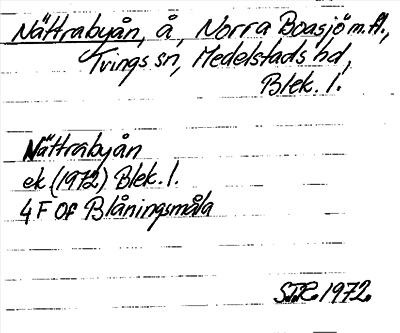 Nättrabyån, å, Norra Boasjö m.fl.,
Tvings sn, Medelstads hd,
Blek. l.
Nättrabyån
ek (1972) Blek. l.
4 F 0f Blåningsmåla
STR 1972